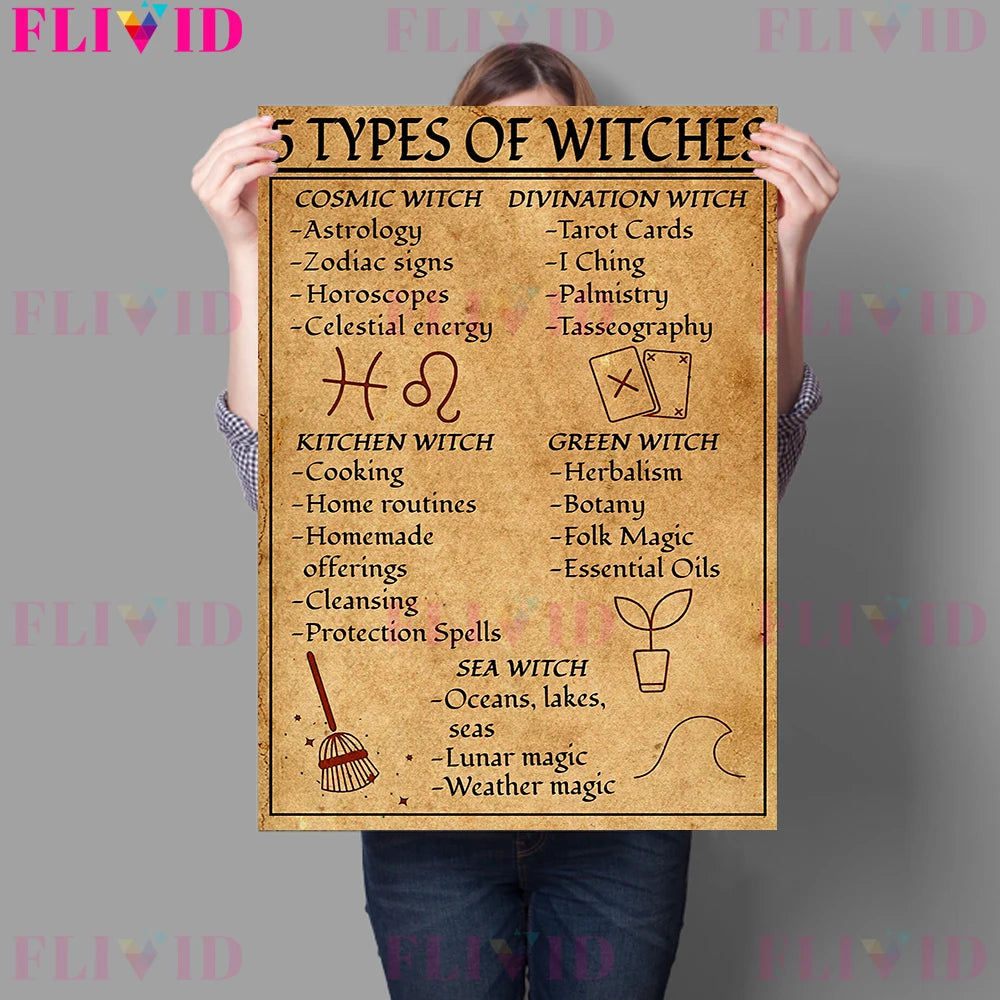 FLIVID
FLIVID
FLIVID
5 TYPES OF WITCHES
COSMIC WITCH
-Astrology
-Zodiac signs
-Horoscopes
-Celestial energy
DIVINATION WITCH
-Tarot Cards
-I Ching
-Palmistry
-Tasseography
FLIVID
FLIVID
FLIVID
KITCHEN WITCH
-Cooking
-Home routines
-Homemade
offerings
-Cleansing
-Protection Spells
GREEN WITCH
-Herbalism
-Botany
-Folk Magic
-Essential Oils
FLIVID
FLIVID
FLIVID
SEA WITCH
-Oceans, lakes,
seas
-Lunar magic
-Weather magic
FLIVID
FLIVID
FLIVID